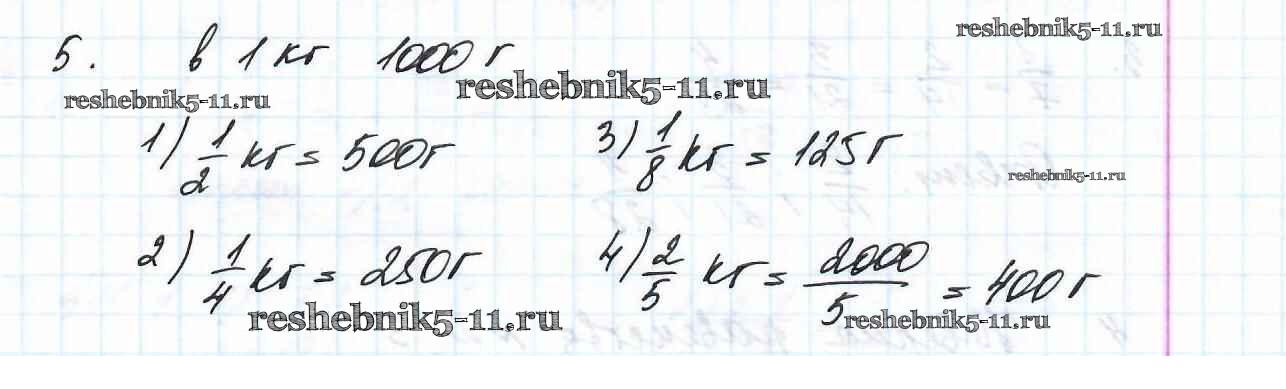 reshebnik5-11.ru
5. в 1 кг 1000 г
reshebnik5-11.ru
reshebnik5-11.ru
1) 1/2 кг = 500 г
3) 1/8 кг = 125 г
reshebnik5-11.ru
2) 1/4 кг = 250 г
4) 2/5 кг = 2000/5 = 400 г
reshebnik5-11.ru
reshebnik5-11.ru